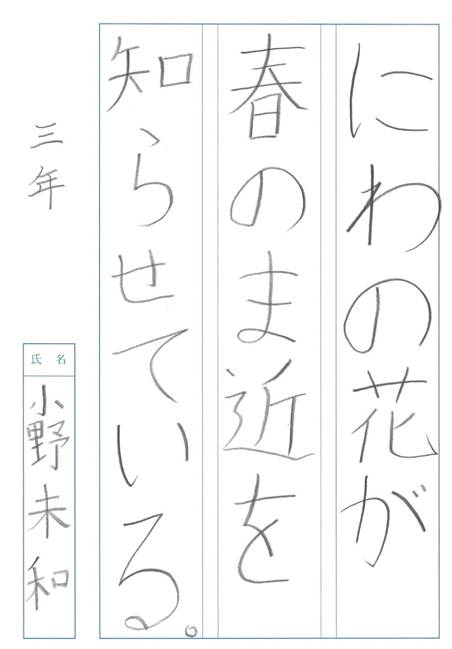 にわの花が
春のま近を
知らせている。
三年
氏名
小野未和